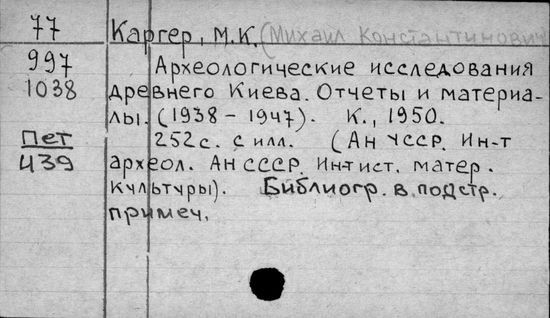 77 Каргер, М.К. (Михаил Константинович
997 Археологические исследования
1038 древнего Киева. Отчеты и материа-
лы. (1938 - 1947). К., 1950.
Пет 252 с. с илл. (АН УССР. Ин-т
439 археол. АН СССР. Ин-т ист. матер.
культуры). Библиогр. в подстр.
примеч.